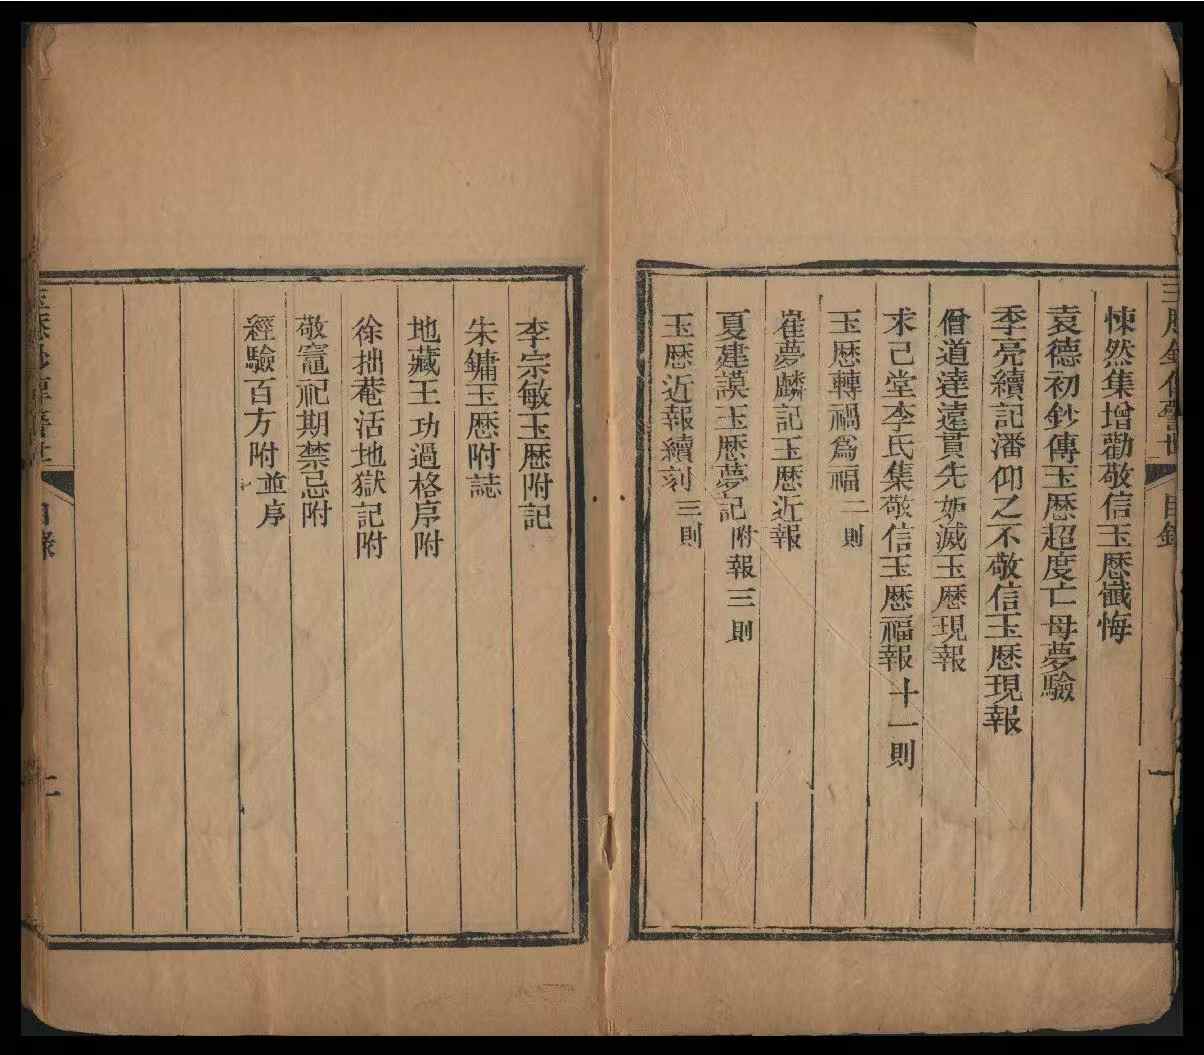 悚然集增勸敬信玉厯懺悔
袁德初鈔傳玉厯超度亡母夢驗
李亮續記潘仰之不敬信玉厯現報
僧道達遠貫先妒滅玉厯現報
求己堂李氏集敬信玉厯福報十一則
玉厯轉禍爲福二則
崔夢麟記玉厯近報
夏建謨玉厯夢記附報三則
玉厯近報續刻三則
李宗敏玉厯附記
朱鏞玉厯附誌
地藏王功過格序附
徐拙菴活地獄記附
敬竈祀期禁忌附
經驗百方附並序
目錄